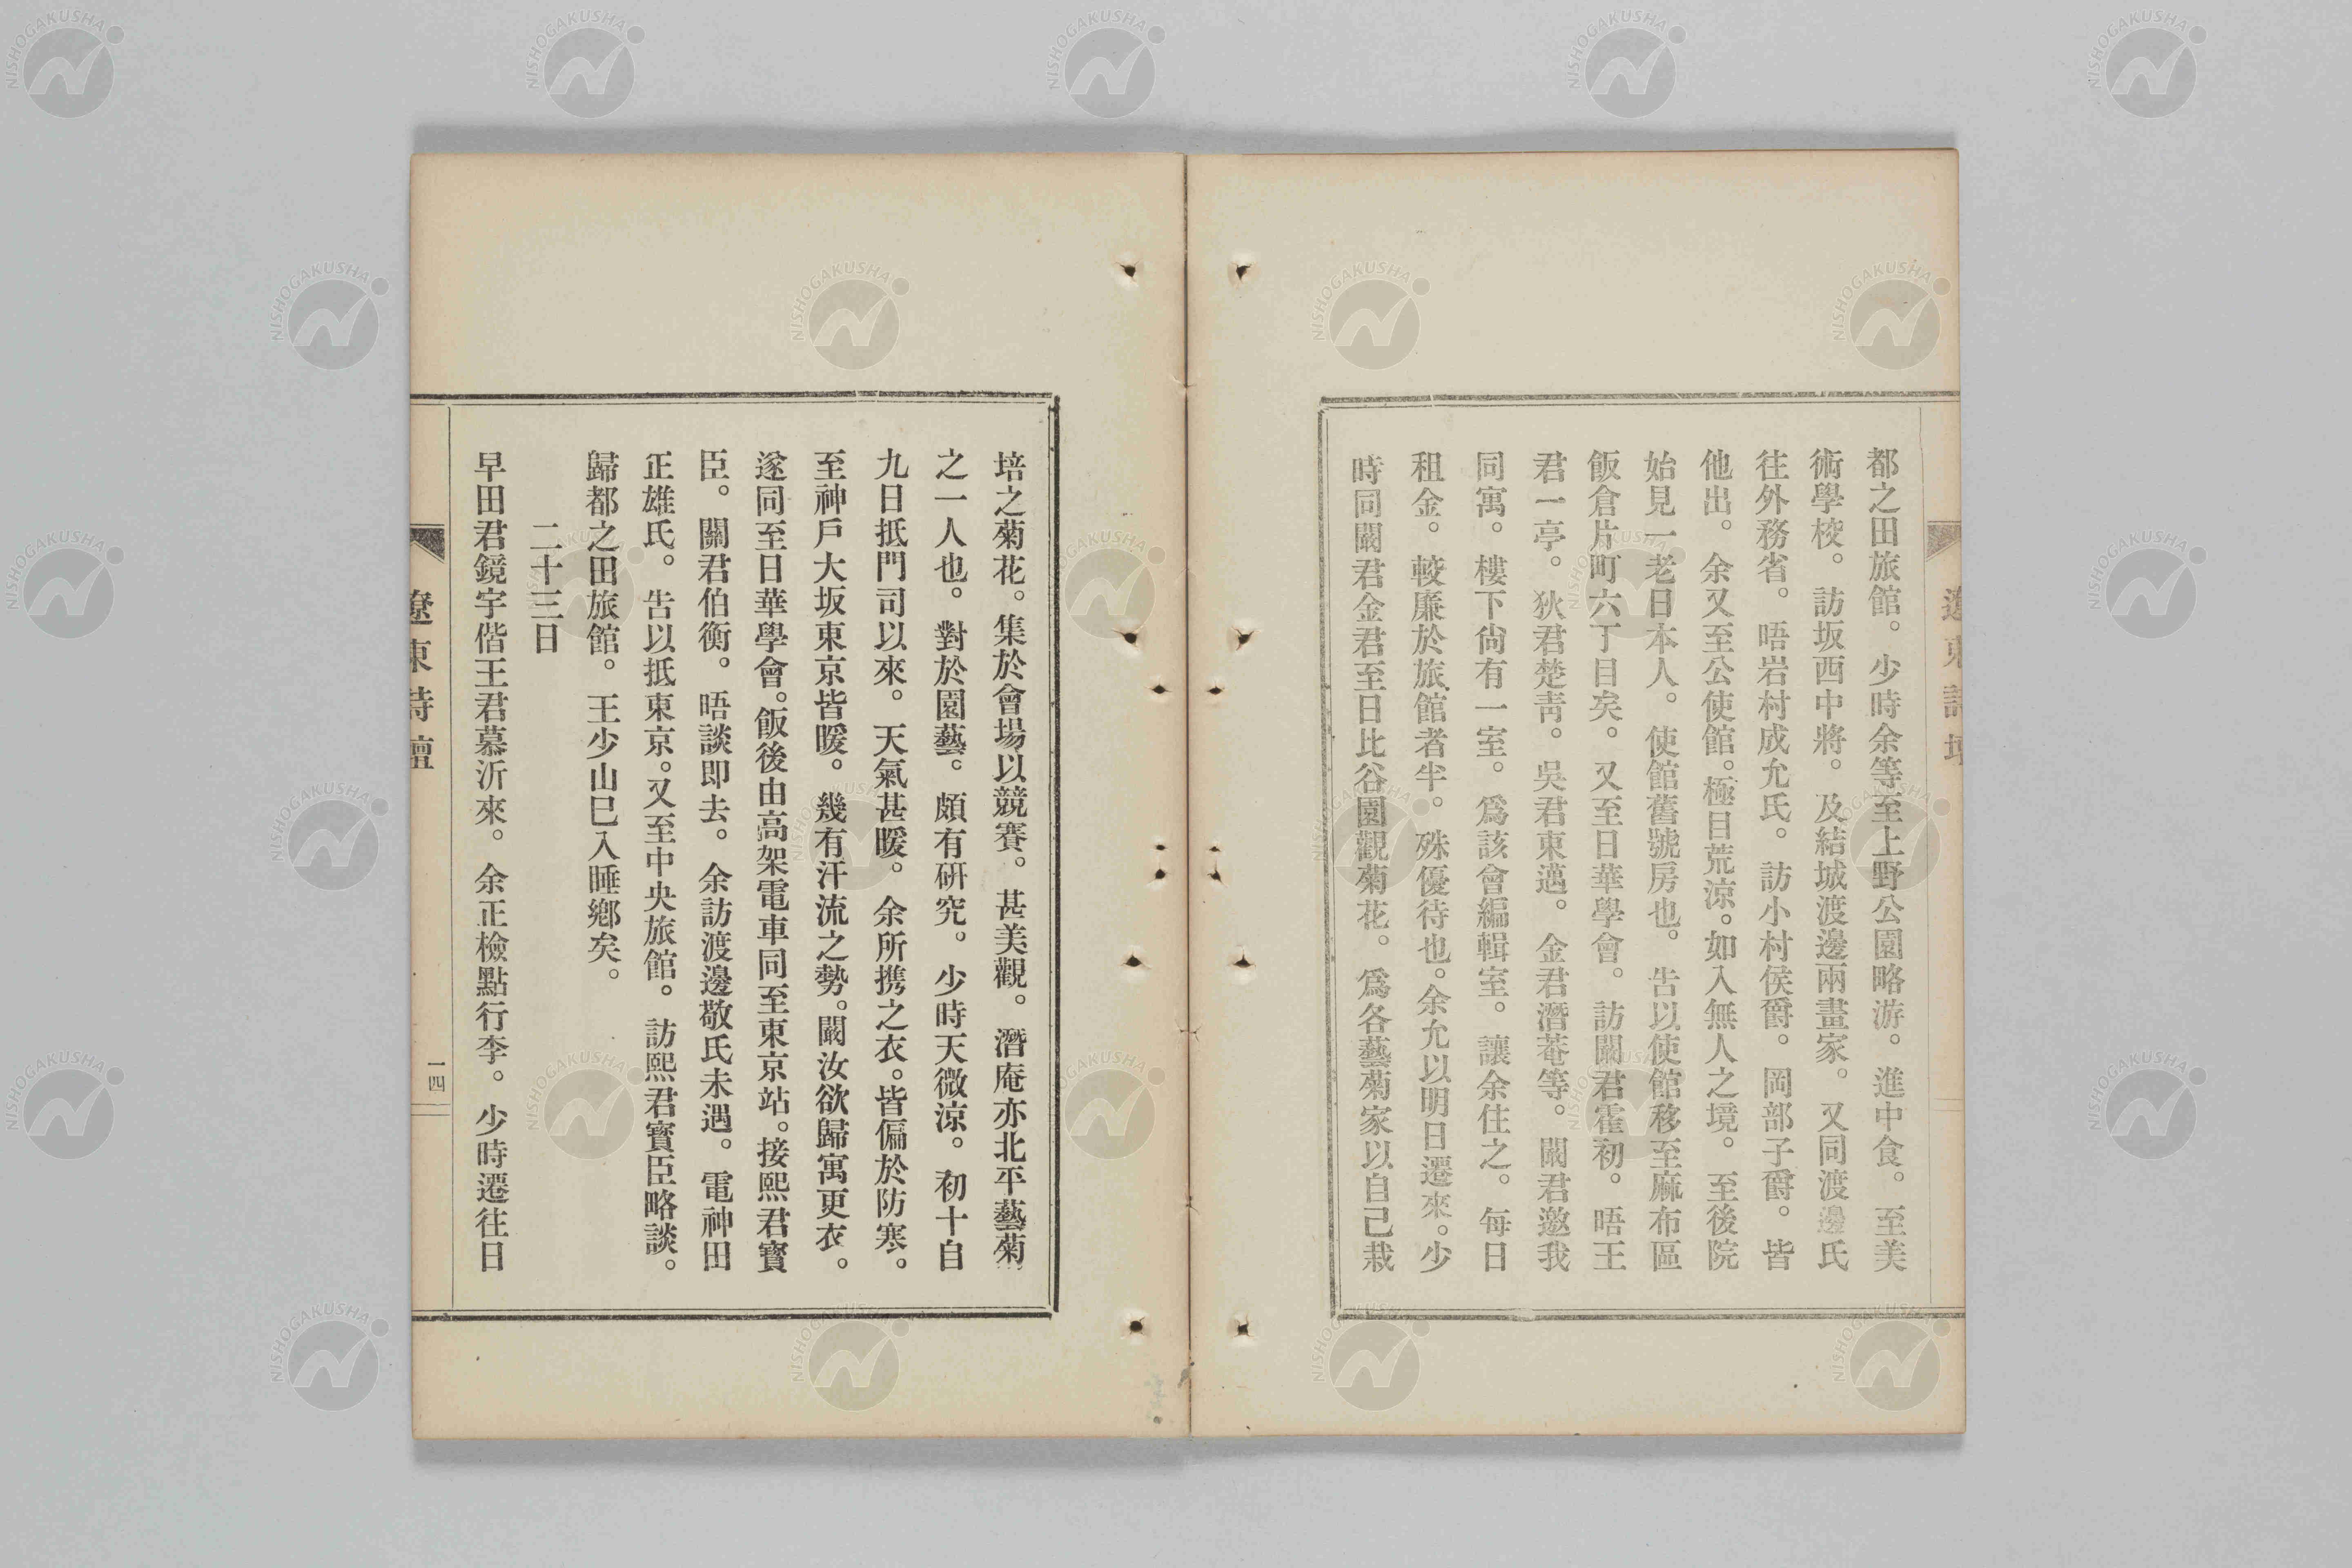 都之田旅館。少時余等至上野公園略游。進中食。至美
術學校。訪坂西中將。及結城渡邊兩畫家。又同渡邊氏
往外務省。晤岩村成允氏。訪小村侯爵。岡部子爵。皆
他出。余又至公使館。極目荒涼。如入無人之境。至後院
始見一老日本人。使館舊號房也。告以使館移至麻布區
飯倉片町六丁目矣。又至日華學會。訪關君霍初。晤王
君一亭。狄君楚靑。吳君東邁。金君潛菴等。闞君邀我
同寓。樓下尙有一室。爲該會編輯室。讓余住之。每日
租金。較廉於旅館者半。殊優待也。余允以明日遷來。少
時同闞君金君至日比谷園觀菊花。爲各藝菊家以自己栽
培之菊花。集於會場以競賽。甚美觀。潛庵亦北平藝菊
之一人也。對於園藝。頗有研究。少時天微涼。初十自
九日抵門司以來。天氣甚暖。余所携之衣。皆偏於防寒。
至神戶大坂東京皆暖。幾有汗流之勢。闞汝欲歸寓更衣。
遂同至日華學會。飯後由高架電車同至東京站。接熙君寶
臣。關君伯衡。晤談即去。余訪渡邊敬氏未遇。電神田
正雄氏。吿以抵東京。又至中央旅館。訪熙君寶臣略談。
歸都之田旅館。王少山巳入睡鄕矣。
二十三日
早田君鏡宇偕王君慕沂來。余正檢點行李。少時遷往日
遼東詩壇
一四
NISHOGAKUSHA